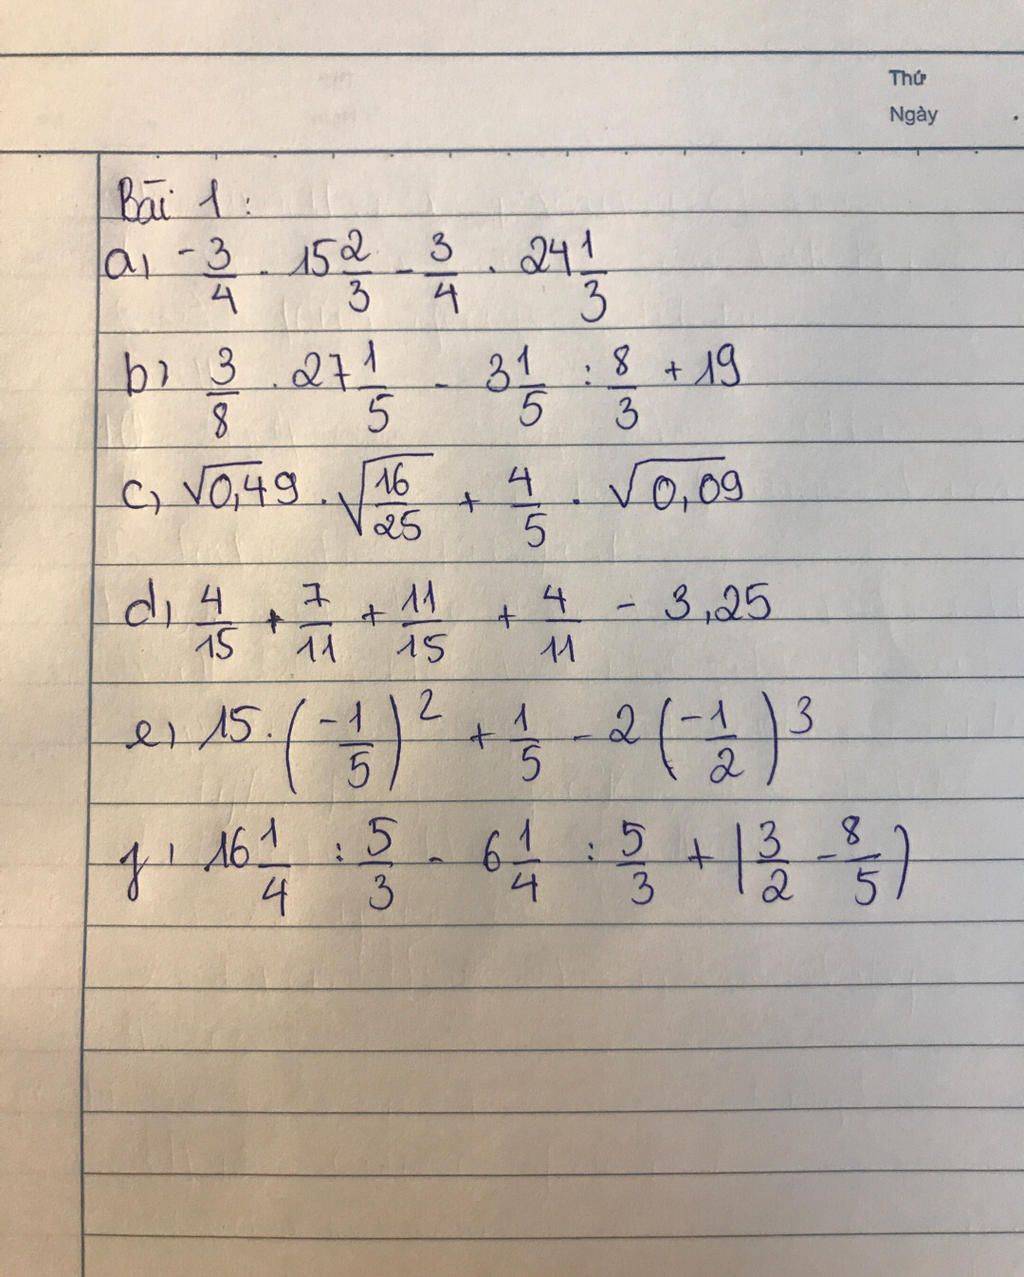 Thứ
Ngày
Bài 1:
a, -3/4 . 15 2/3 - 3/4 . 24 1/3
b) 3/8 . 27 1/5 - 3 1/5 : 8/3 + 19
c, √0,49 . √16/25 + 4/5 . √0,09
d, 4/15 + 7/11 + 11/15 + 4/11 - 3,25
e, 15. (-1/5)² + 1/5 - 2 (-1/2)³
f, 16 1/4 : 5/3 - 6 1/4 : 5/3 + |3/2 - 8/5)